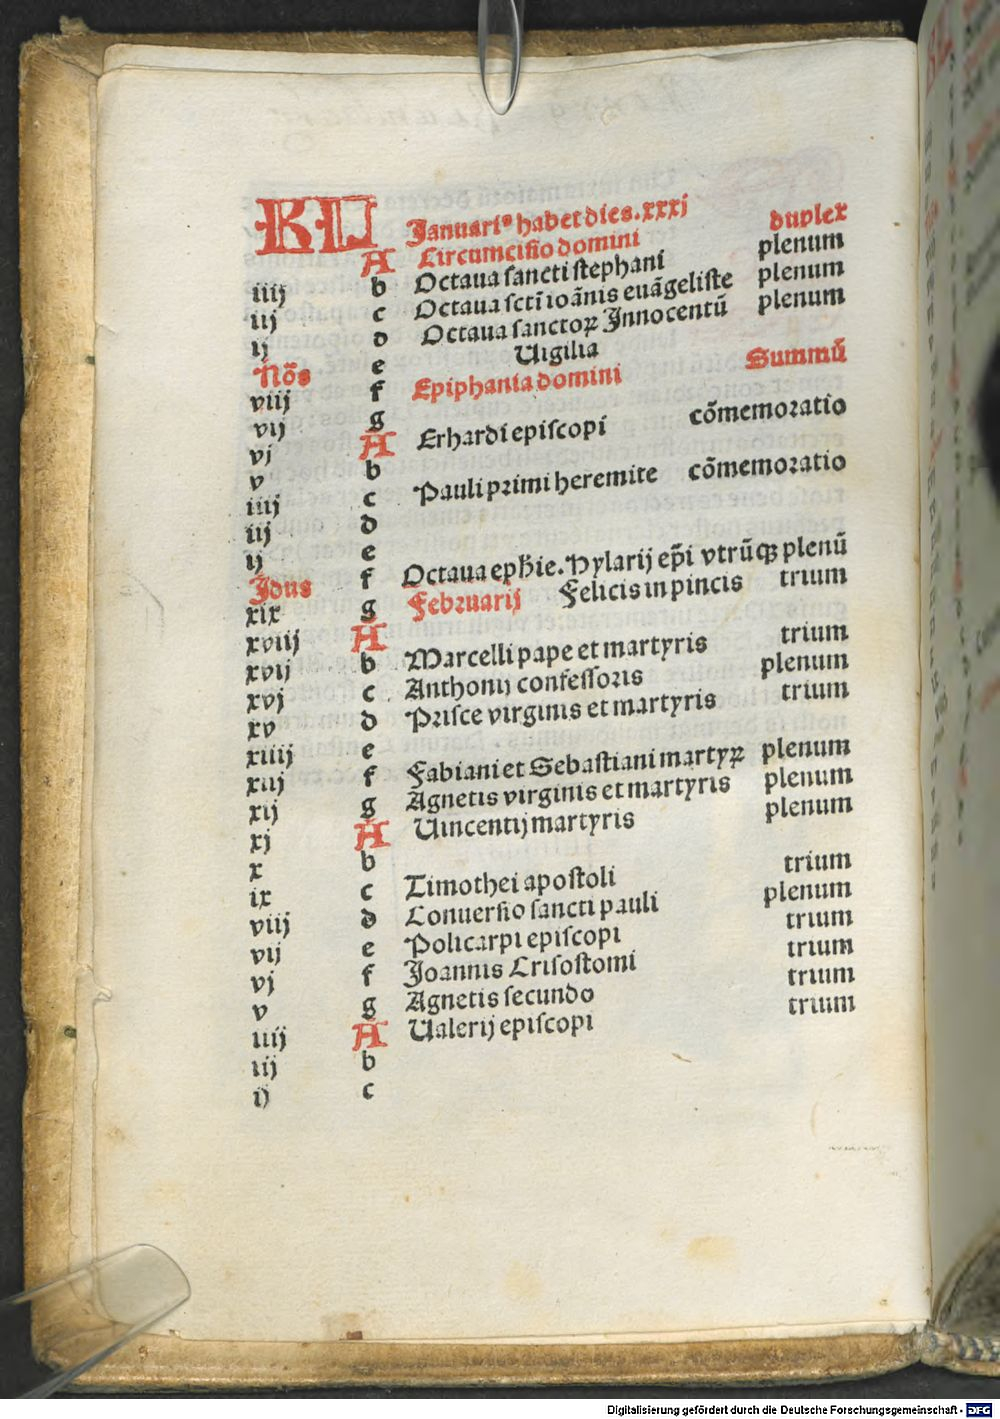 KL Januari⁹ habet dies.xxxj
A Circumcisio domini duplex
iiij b Octaua sancti stephani plenum
iij c Octaua sctī ioānis euāgeliste plenum
ij d Octaua sanctoꝝ Innocentū plenum
Nōs e Uigilia
viij f Epiphania domini Summū
vij g
vj A Erhardi episcopi cōmemoratio
v b
iiij c Pauli primi heremite cōmemoratio
iij d
ij e
Idus f Octaua ephie. Hylarij ep̄i vtrūqꝫ plenū
xix g Februarij Felicis in pincis trium
xviij A
xvij b Marcelli pape et martyris trium
xvj c Anthonij confessoris plenum
xv d Prisce virginis et martyris trium
xiiij e
xiij f Fabiani et Sebastiani martyꝝ plenum
xij g Agnetis virginis et martyris plenum
xj A Uincentij martyris plenum
x b
ix c Timothei apostoli trium
viij d Conuersio sancti pauli plenum
vij e Policarpi episcopi trium
vj f Joannis Crisostomi trium
v g Agnetis secundo trium
iiij A Ualerij episcopi trium
iij b
ij c
Digitalisierung gefördert durch die Deutsche Forschungsgemeinschaft - DFG